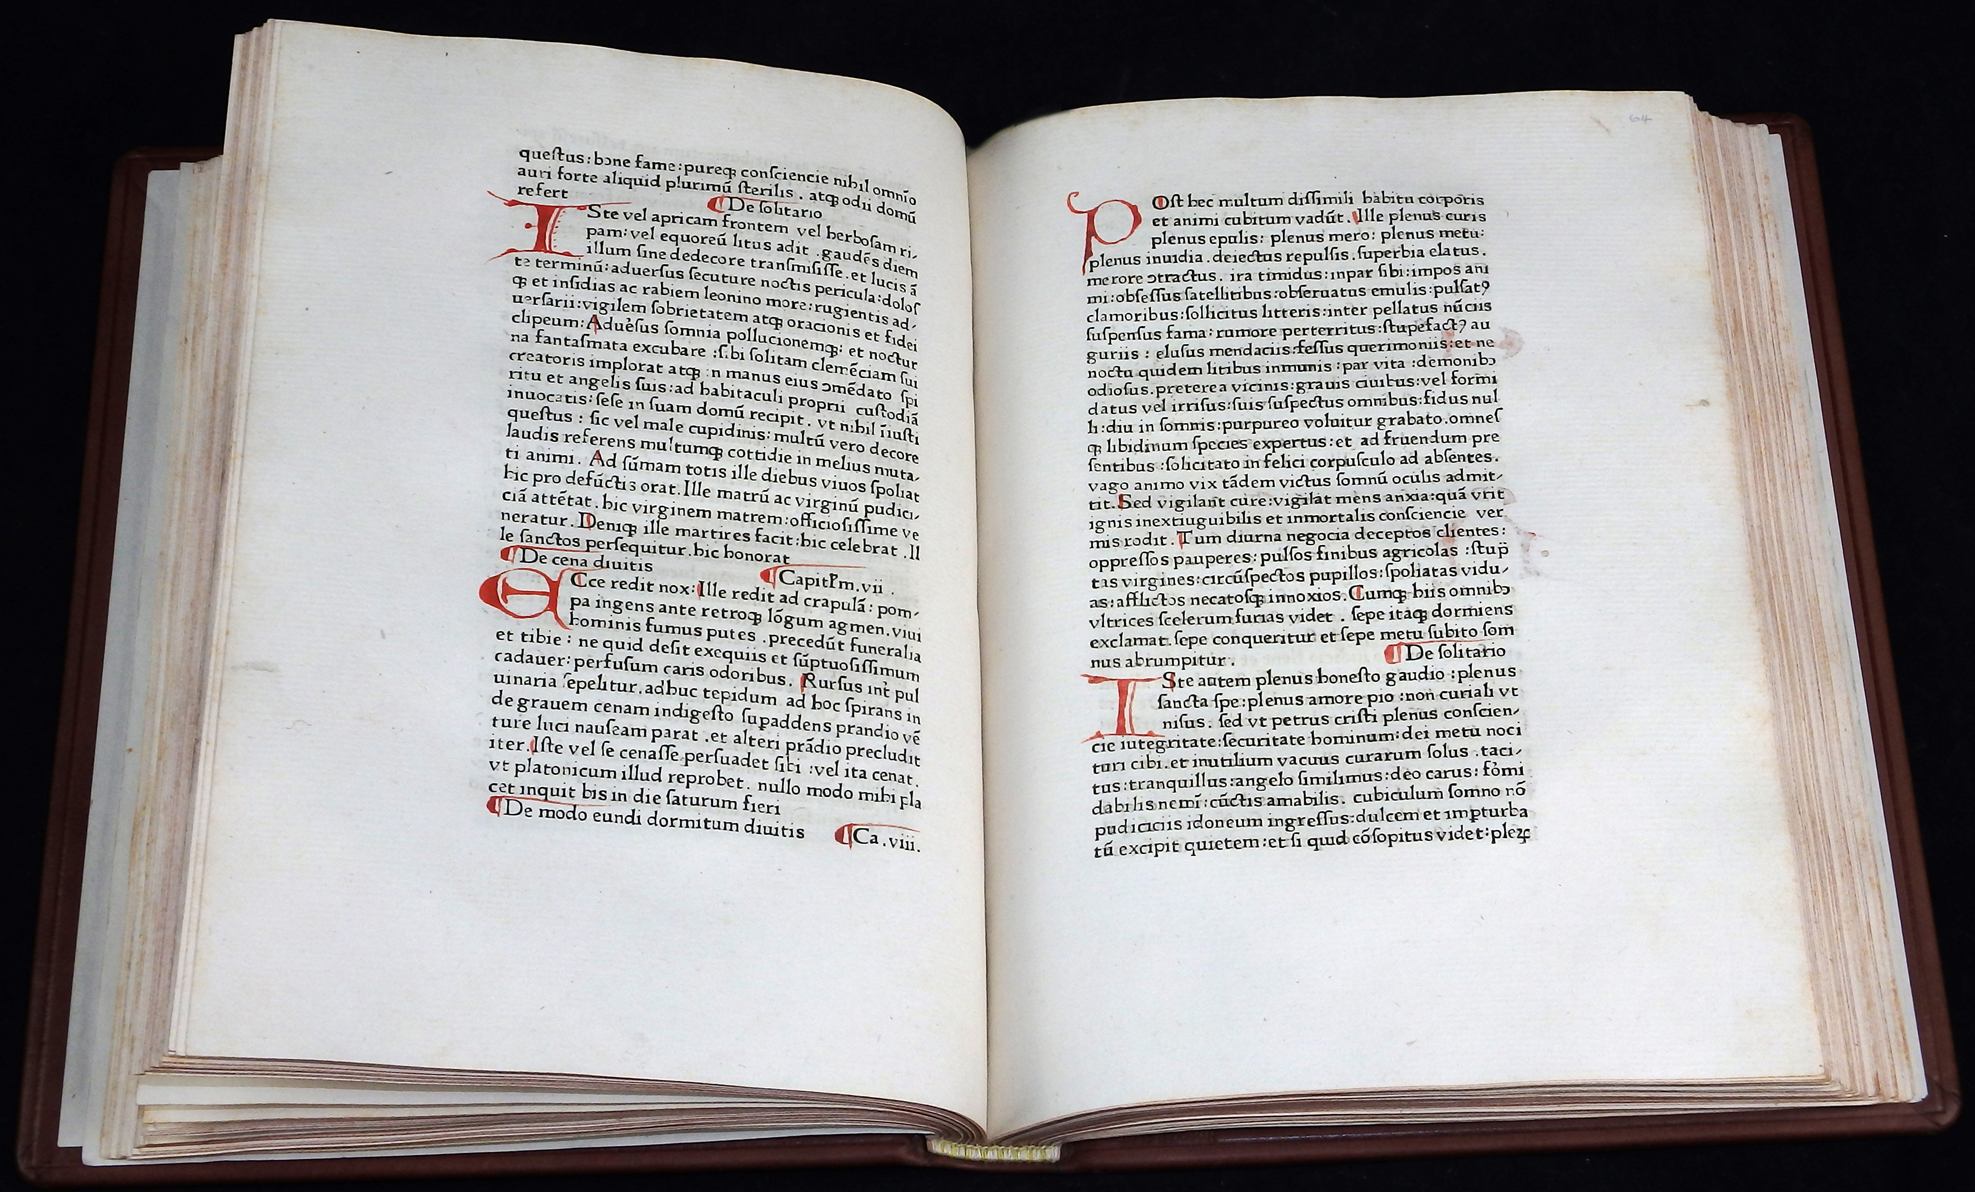 questus: bone fame: pureqꝫ consciencie nihil omnīo
auri forte aliquid plurimū sterilis . atqꝫ odii domū
refert
¶De solitario
ISte vel apricam frontem vel herbosam ri⸗
pam: vel equoreū litus adit . gaudēs diem
illum sine dedecore transmisisse . et lucis ā
te terminū: aduersus secuture noctis pericula: dolos
qꝫ et insidias ac rabiem leonino more: rugientis ad⸗
uersarii: vigilem sobrietatem atqꝫ oracionis et fidei
clipeum: Aduersus somnia pollucionemqꝫ: et noctur
na fantasmata excubare : sibi solitam clemēciam sui
creatoris implorat atqꝫ in manus eius ꝯmēdato spi
ritu et angelis suis: ad habitaculi proprii custodiā
inuocatis: sese in suam domū recipit . vt nihil īiusti
questus : sic vel male cupidinis: multū vero decore
laudis referens multumqꝫ cottidie in melius muta⸗
ti animi . Ad sūmam totis ille diebus viuos spoliat
hic pro defūctis orat . Ille matrū ac virginū pudici⸗
ciā attētat . hic virginem matrem: officiosissime ve
neratur . Deniqꝫ ille martires facit: hic celebrat . Il
le sanctos persequitur . hic honorat
¶De cena diuitis ¶Capitłm . vii .
ECce redit nox: Ille redit ad crapulā: pom⸗
pa ingens ante retroqꝫ lōgum agmen . viui
hominis fumus putes . precedūt funeralia
et tibie : ne quid desit exequiis et sūptuosissimum
cadauer: perfusum caris odoribus . Rursus int̄ pul
uinaria sepelitur . adhuc tepidum ad hoc spirans in
de grauem cenam indigesto supaddens prandio vē
ture luci nauseam parat . et alteri prādio precludit
iter . Iste vel se cenasse persuadet sibi : vel ita cenat .
vt platonicum illud reprobet . nullo modo mihi pla
cet inquit bis in die saturum fieri
¶De modo eundi dormitum diuitis ¶Ca . viii .
POst hec multum dissimili habitu corporis
et animi cubitum vadūt . Ille plenus curis
plenus epulis: plenus mero: plenus metu:
plenus inuidia . deiectus repulsis . superbia elatus .
merore ꝯtractus . ira timidus: inpar sibi: impos ani
mi: obsessus satellitibus: obseruatus emulis: pulsatꝰ
clamoribus: sollicitus litteris: inter pellatus nūciis
suspensus fama: rumore perterritus: stupefactꝰ au
guriis : elusus mendaciis: fessus querimoniis: et ne
noctu quidem litibus inmunis : par vita : demonibꝫ
odiosus . preterea vicinis: grauis ciuibus: vel formi
datus vel irrisus: suis suspectus omnibus: fidus nul
li: diu in somnis: purpureo voluitur grabato . omnes
qꝫ libidinum species expertus: et ad fruendum pre
sentibus : solicitato in felici corpusculo ad absentes .
vago animo vix tādem victus somnū oculis admit⸗
tit . Sed vigilant cure: vigilāt mens anxia: quā vrit
ignis inextiuguibilis et inmortalis consciencie ver
mis rodit . Tum diurna negocia deceptos clientes:
oppressos pauperes: pulsos finibus agricolas : stup̄
tas virgines: circūspectos pupillos: spoliatas vidu⸗
as: afflictos necatosqꝫ innoxios . Cumqꝫ hiis omnibꝫ
vltrices scelerum furias videt . sepe itaqꝫ dormiens
exclamat . sepe conqueritur et sepe metu subito som
nus abrumpitur . ¶De solitario
ISte autem plenus honesto gaudio : plenus
sancta spe: plenus amore pio : non curiali vt
nisus . sed vt petrus cristi plenus conscien⸗
cie iutegritate: securitate hominum: dei metu noci
turi cibi . et inutilium vacuus curarum solus . taci⸗
tus: tranquillus: angelo similimus: deo carus: fōmi
dabilis nemī: cūctis amabilis . cubiculum somno nō
pudiciciis idoneum ingressus: dulcem et impturba
tū excipit quietem: et si quid cōsopitus videt: pleꝝqꝫ
64